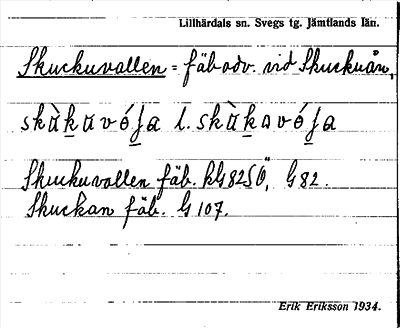 Lillhärdals sn. Svegs tg. Jämtlands län.
Skuckuvallen = fäbodv. vid Skuckuån,
Skuckuvallen fäb. kG82SÖ, G82.
Skuckan fäb. G 107.
Erik Eriksson 1934.